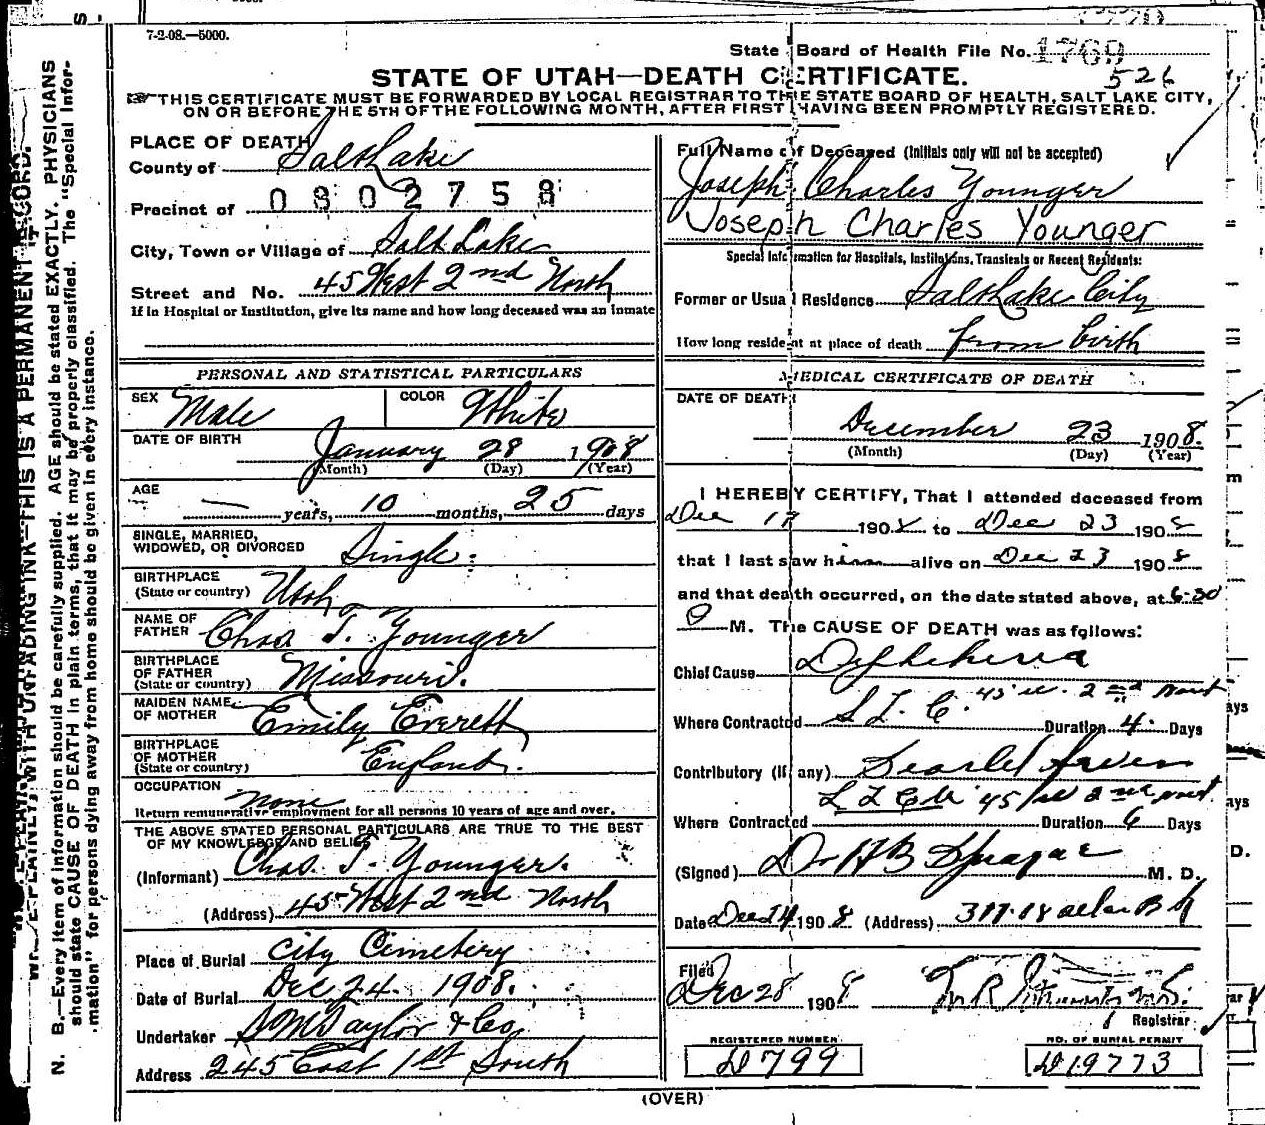 7-2-08.—5000.
State Board of Health File No. 1769
526
STATE OF UTAH—DEATH CERTIFICATE.
THIS CERTIFICATE MUST BE FORWARDED BY LOCAL REGISTRAR TO THE STATE BOARD OF HEALTH, SALT LAKE CITY,
ON OR BEFORE THE 5TH OF THE FOLLOWING MONTH, AFTER FIRST HAVING BEEN PROMPTLY REGISTERED.
PLACE OF DEATH
County of Salt Lake
0802758
Precinct of
City, Town or Village of Salt Lake
Street and No. 45 West 2nd North
If in Hospital or Institution, give its name and how long deceased was an inmate
PERSONAL AND STATISTICAL PARTICULARS
SEX Male COLOR White
DATE OF BIRTH January 28 1908
(Month) (Day) (Year)
AGE
— years, 10 months, 25 days
SINGLE, MARRIED,
WIDOWED, OR DIVORCED Single
BIRTHPLACE
(State or country) Utah
NAME OF
FATHER Chas T. Younger
BIRTHPLACE
OF FATHER
(State or country) Missouri.
MAIDEN NAME
OF MOTHER Emily Everett
BIRTHPLACE
OF MOTHER
(State or country) England.
OCCUPATION none
Return remunerative employment for all persons 10 years of age and over.
THE ABOVE STATED PERSONAL PARTICULARS ARE TRUE TO THE BEST
OF MY KNOWLEDGE AND BELIEF
(Informant) Chas. T. Younger.
(Address) 45 West 2nd North
Place of Burial City Cemetery
Date of Burial Dec 24. 1908.
Undertaker S M Taylor & Co
Address 245 East 1st South
Full Name of Deceased (Initials only will not be accepted)
Joseph Charles Younger
Joseph Charles Younger
Special Information for Hospitals, Institutions, Transients or Recent Residents:
Former or Usual Residence Salt Lake City
How long resident at place of death from birth
MEDICAL CERTIFICATE OF DEATH
DATE OF DEATH
December 23 1908.
(Month) (Day) (Year)
I HEREBY CERTIFY, That I attended deceased from
Dec 17 1908 to Dec 23 1908
that I last saw him alive on Dec 23 1908
and that death occurred, on the date stated above, at 6:20
P M. The CAUSE OF DEATH was as follows:
Chief Cause Diphtheria
Where Contracted S L C. 45 W. 2nd North Duration 4 Days
Contributory (if any) Scarlet Fever
45 W 2nd North
Where Contracted Duration 6 Days
(Signed) Dr H B Sprague M. D.
Date Dec 24 1908 (Address)
Filed
Dec 28 1908
Registrar
REGISTERED NUMBER
D799
NO. OF BURIAL PERMIT
D19773
(OVER)
N. B.—Every item of information should be carefully supplied. AGE should be stated EXACTLY. PHYSICIANS
should state CAUSE OF DEATH in plain terms, that it may be properly classified. The "Special Infor-
mation" for persons dying away from home should be given in every instance.
WRITE PLAINLY, WITH UNFADING INK—THIS IS A PERMANENT RECORD.